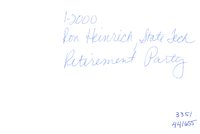 1-2000
Ron Heinrich, State Tech
Retirement Party
3351
441655